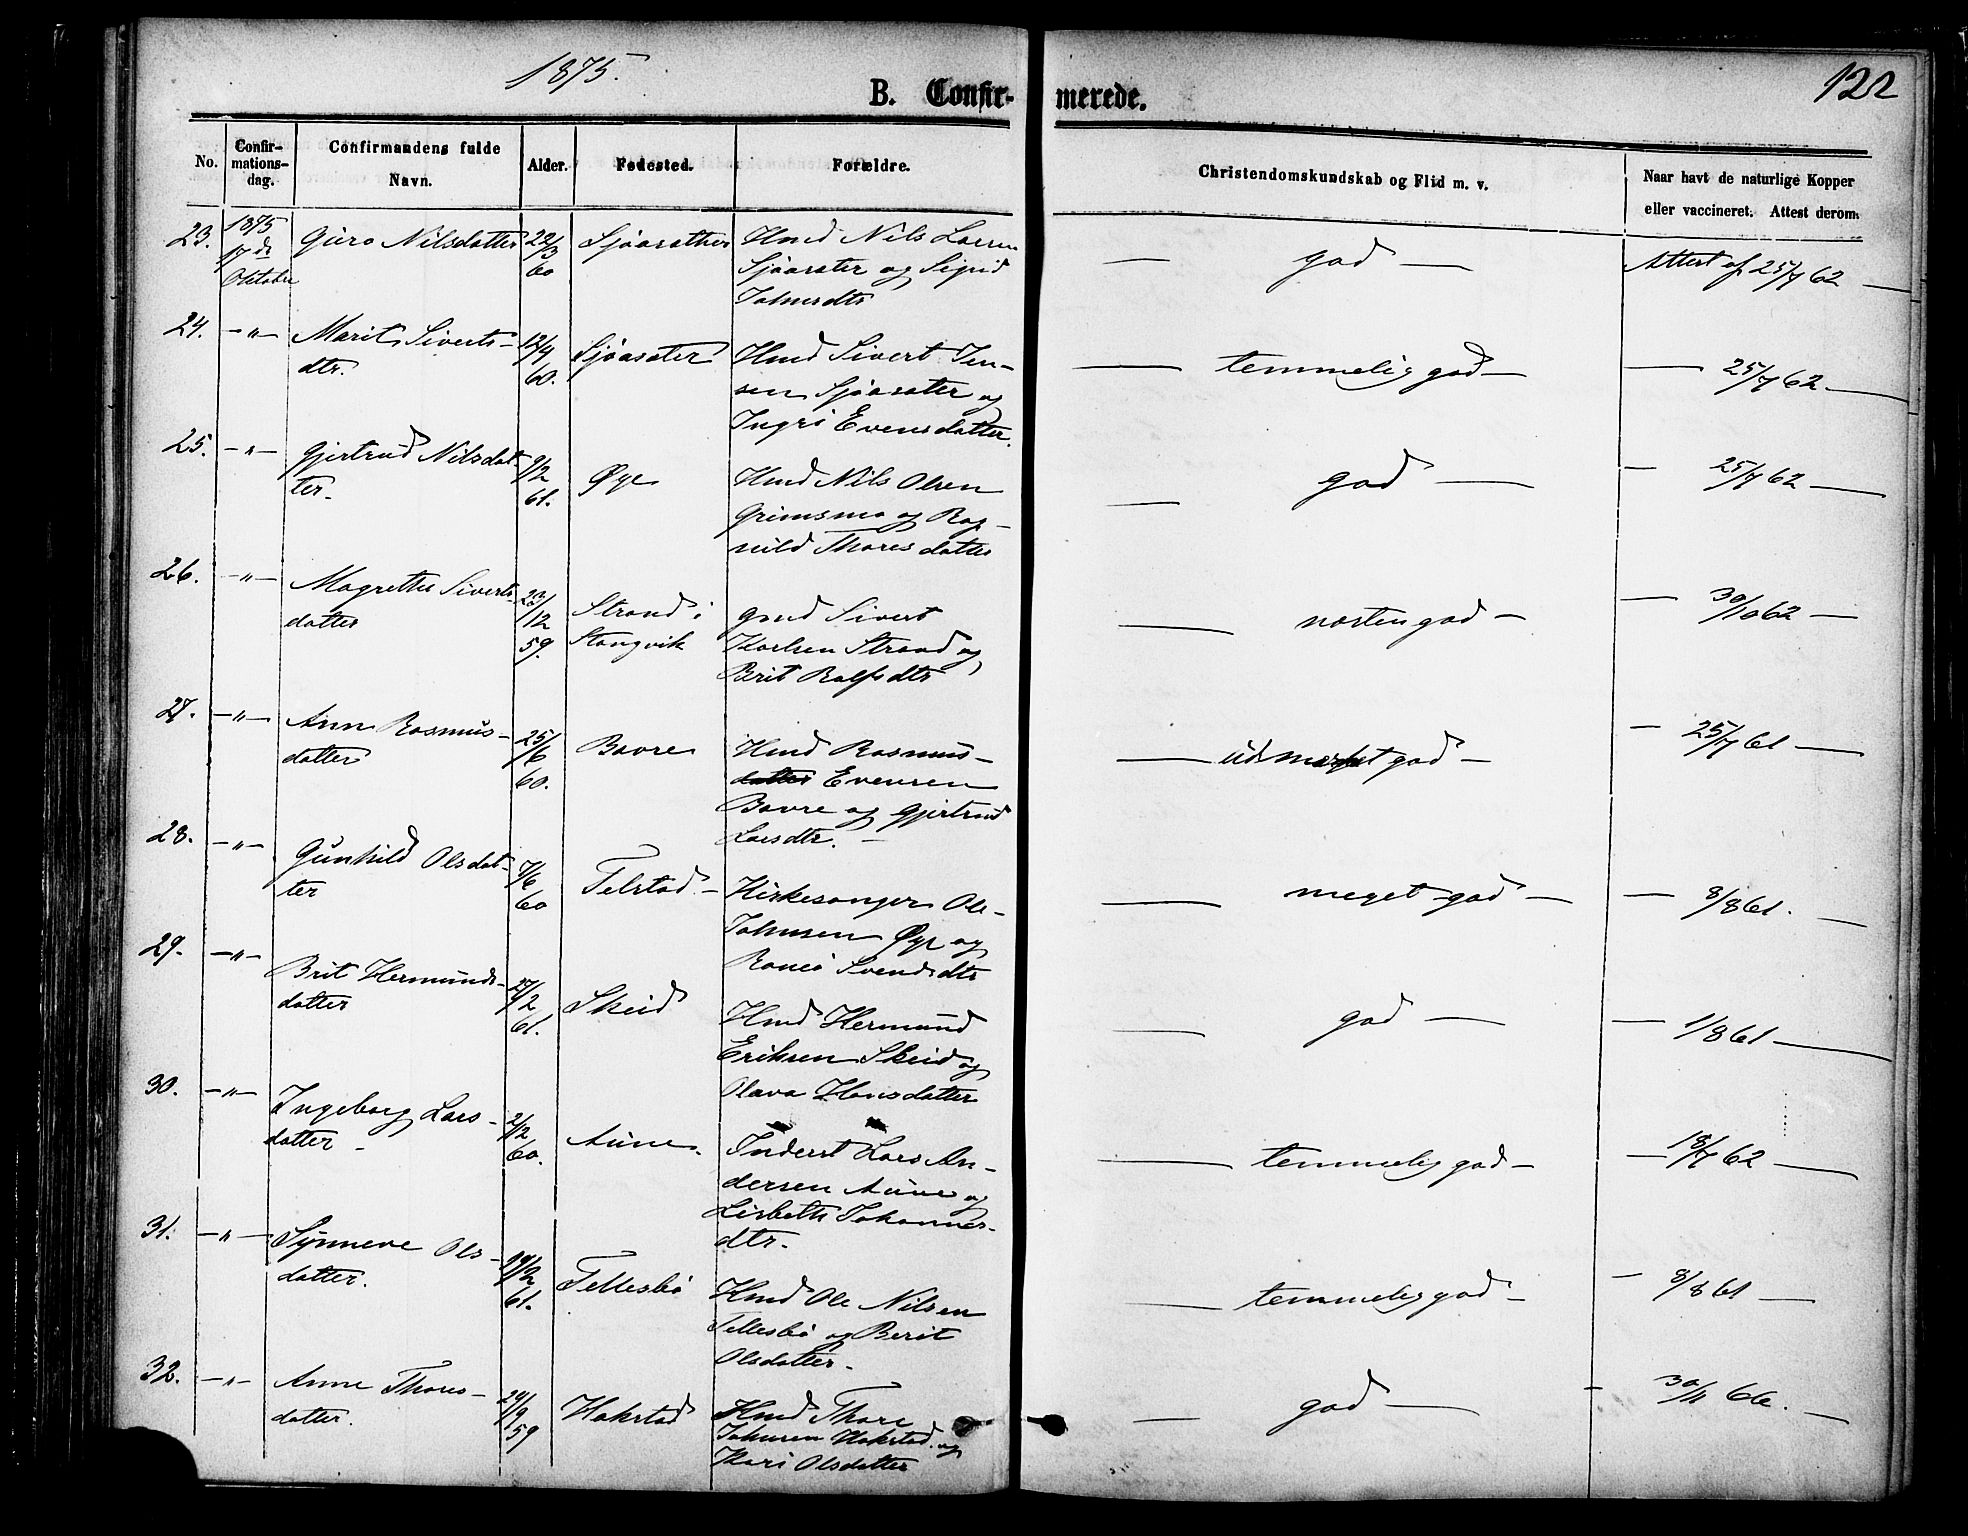 1875.
B. Confir-
merede.
122
No.
Confir-
mations-
dag.
Confirmandens fulde
Navn.
Alder.
Fødested.
Forældre.
Christendomskundskab og Flid m. v.
Naar havt de naturlige Kopper
eller vaccineret. Attest derom.
23.
1875
17 de
Oktober
Guro Nilsdatter
22/3
60
Sjøasæther
Hmd Nils Larsen
Sjøasæter og Sigrid
Johnsdtr
— god —
Attest af 25/7 62 —
24.
—"—
Marit Siverts-
dtr.
12/9
60.
Sjøasæter
Hmd Sivert Jen-
sen Sjøasæter og
Ingri Evensdatter.
— temmelig god —
— 25/7 62 —
25.
—"—
Gjertrud Nilsdat-
ter.
9/2
61.
Øye
Hmd Nils Olsen
Grimsmo og Rag-
nild Thoresdatter
— god —
— 25/7 62 —
26.
—"—
Magrethe Siverts-
datter
23/12
59.
Strand i
Stangvik
Gmd Sivert
Karlsen Strand og
Brit Rolfsdtr
— næsten god —
— 30/10 62 —
27.
—"—
Ann Rasmus-
datter
25/6
60.
Bævre
Hmd Rasmus-
datter Evensen
Bævre og Gjertrud
Larsdtr. —
— udmærket god —
— 25/7 61 —
28.
—"—
Gunhild Olsdat-
ter
7/6
60
Telstad —
Kirkesanger Ole
Johnsen Øye og
Svendsdtr
— meget god —
— 8/8 61. —
29.
—"—
Brit Hermunds-
datter
27/2
61.
Skeid
Hmd Hermund
Eriksen Skeid og
Olava Hansdatter
— god —
— 1/8 61 —
30.
—"—
Ingeborg Lars-
datter —
2/12
60.
Aune.
Inderst Lars An-
dersen Aune og
Lisbeth Johannes-
dtr.
— temmelig god —
— 18/7 62 —
31.
—"—
Synneve Ols-
datter.
61.
Tellesbø
Hmd Ole Nilsen
Tellesbø og Berit
Olsdatter.
— temmelig god —
— 8/8 61 —
32.
—"—
Anne Thores-
datter.
29/9
59
Hakstad
Hmd Thore
Johnsen Hakstad og
Kari Olsdatter
— god —
— 30/11 66. —